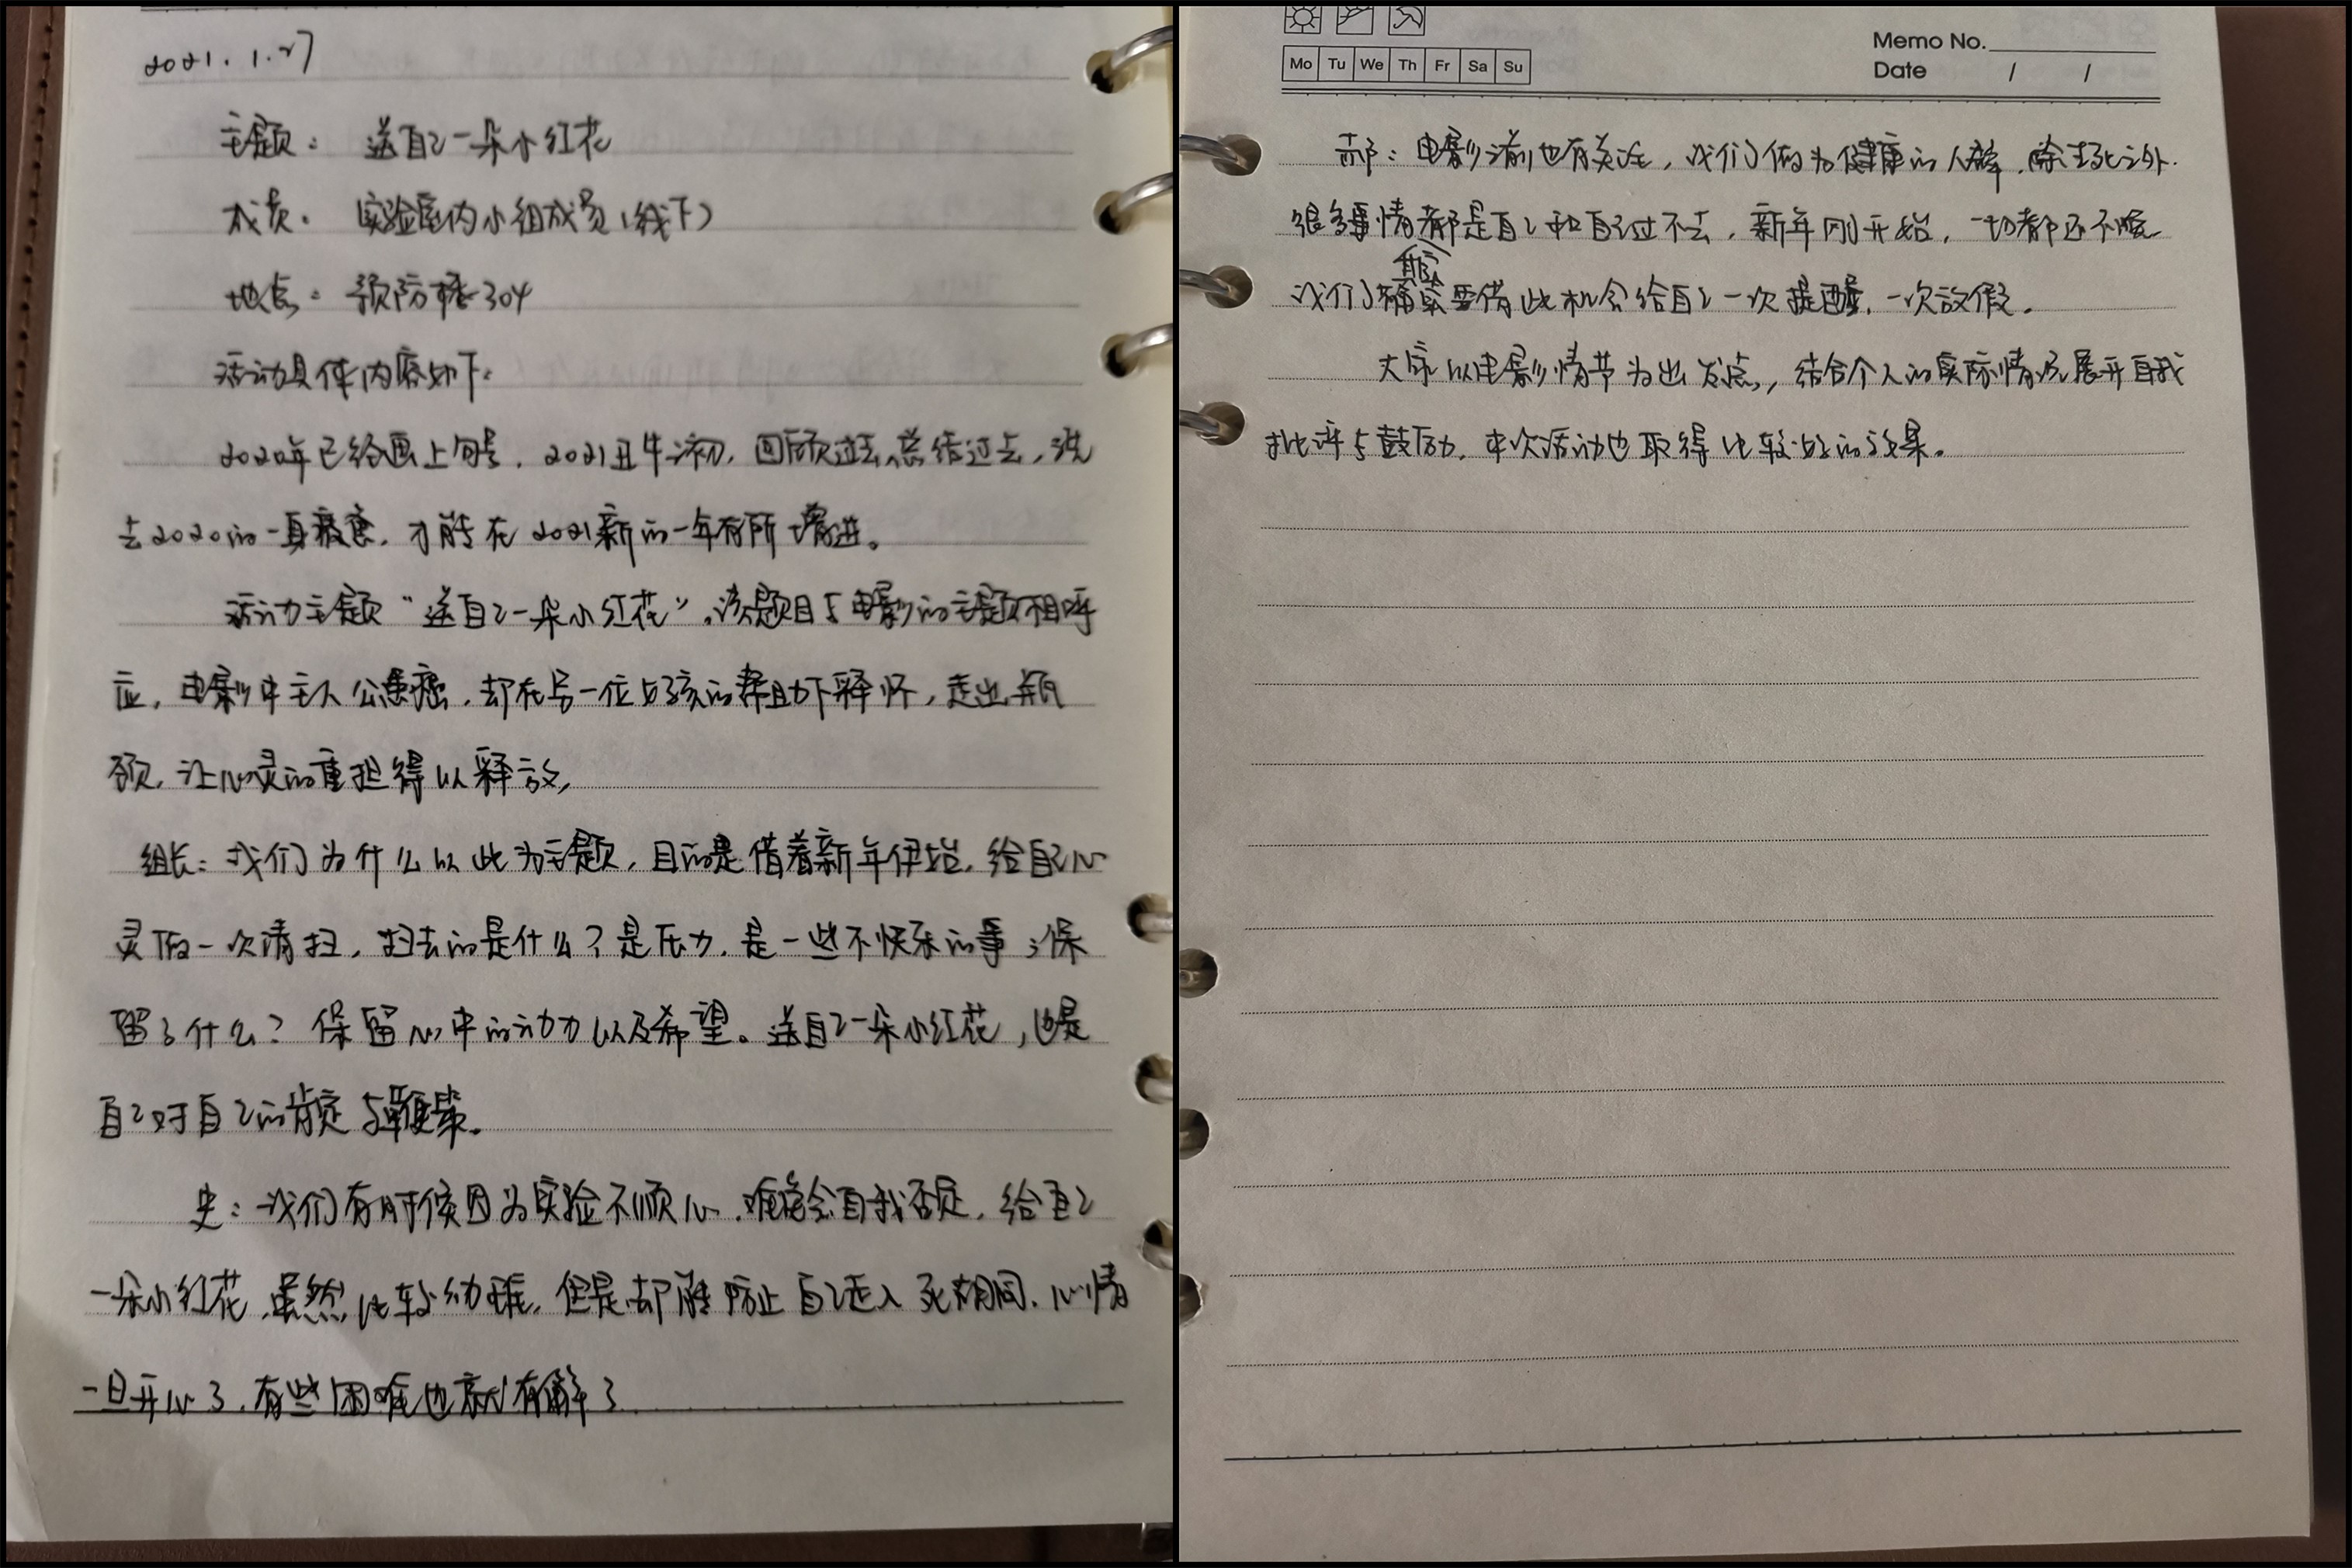 2021.1.27
主题：送自己一朵小红花
成员：实验室内小组成员（线下）
地点：预防楼304
活动具体内容如下：
2020年已经画上句号，2021丑牛初，回顾过去，总结过去，洗
去2020的一身疲惫，才能在2021新的一年有所增进。
活动主题“送自己一朵小红花”，该题目与电影的主题相呼
应，电影中主人公患癌，却在另一位女孩的帮助下释怀，走出瓶
颈，让心灵的重担得以释放，
组长：我们为什么以此为主题，目的是借着新年伊始，给自己心
灵做一次清扫，扫去的是什么？是压力，是一些不快乐的事；保
留了什么？保留心中的动力以及希望。送自己一朵小红花，也是
自己对自己的肯定与鞭策。
史：我们有时候因为实验不顺心，难免会自我否定，给自己
一朵小红花，虽然比较幼稚，但是却能防止自己走入死胡同，心情
一旦开心了，有些困难也就有解了
Mo Tu We Th Fr Sa Su
Memo No.
Date / /
郝：电影之前也有关注，我们做为健康的人群，除生死之外，
很多事情都是自己和自己过不去，新年刚开始，一切都还不晚
我们需要借此机会给自己一次提醒，一次放假。
大家以电影情节为出发点，结合个人的实际情况展开自我
批评与鼓励，本次活动也取得比较好的效果。